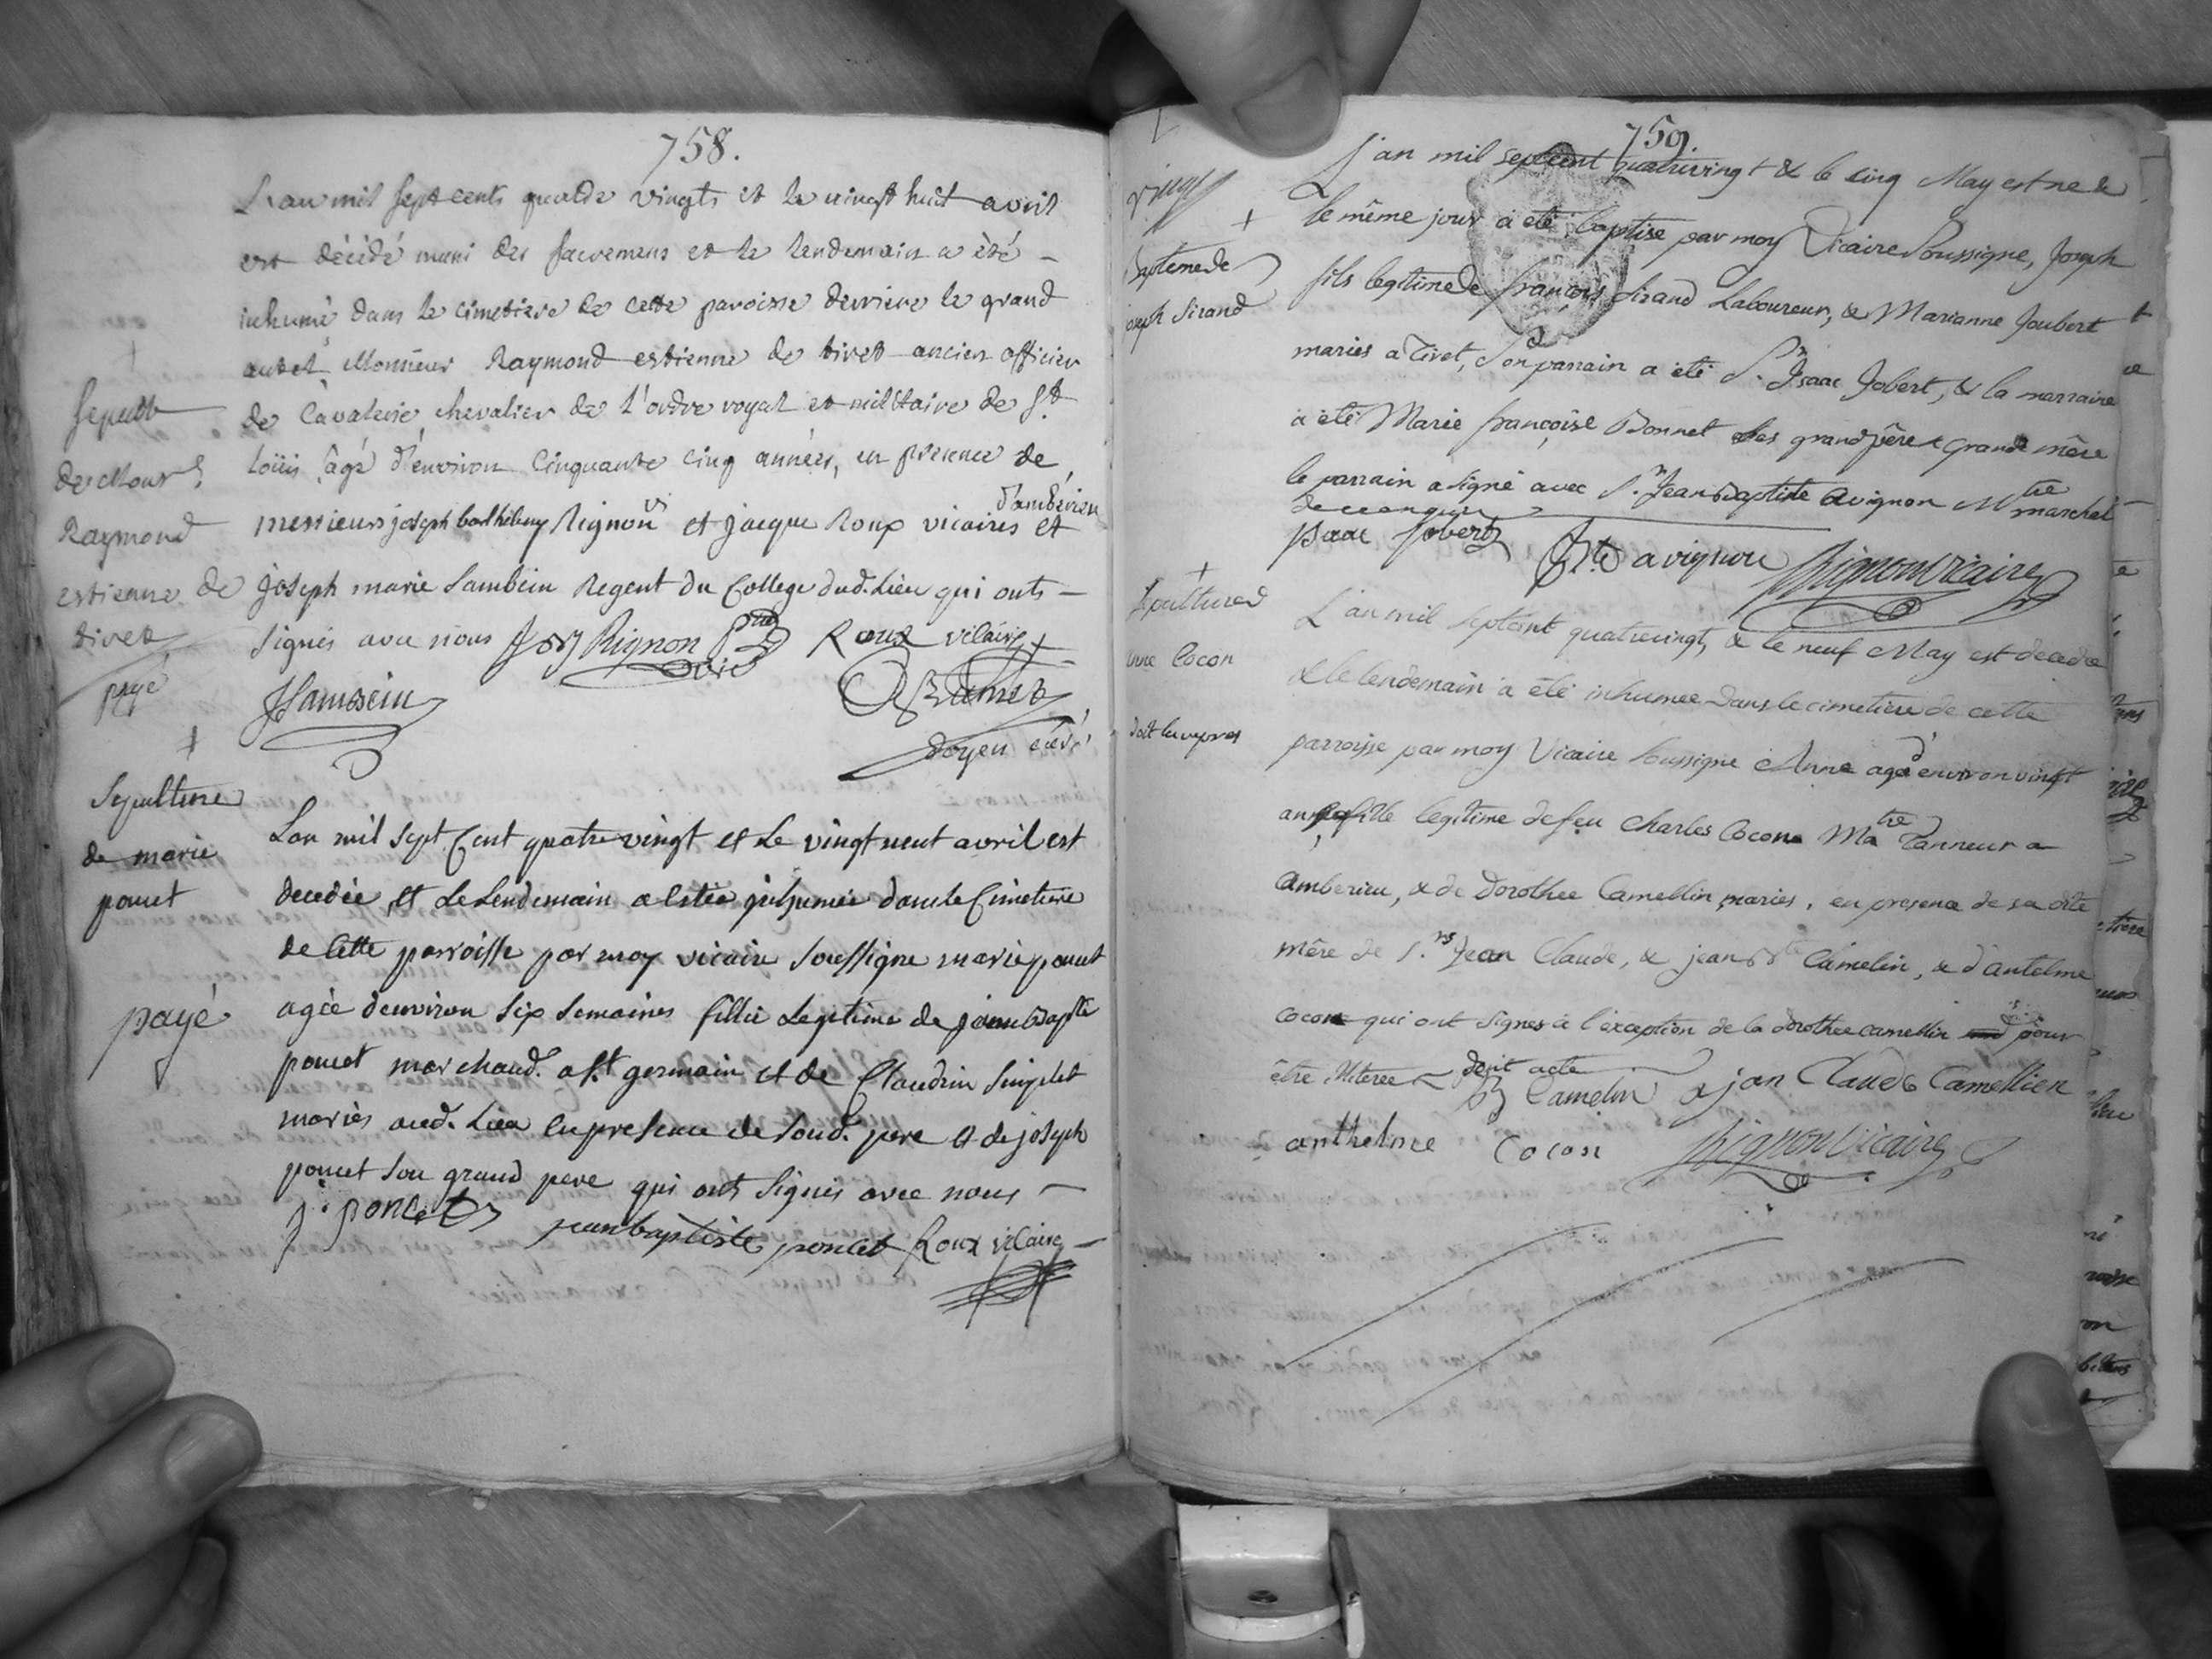 758.
L'an mil sept cents quatre vingts et le vingt huit avril
est décédé muni des sacremens et le lendemain a èté
inhumé dans le cimetiere de cette paroisse derriere le grand
autel Monsieur Raymond estienne de tivet ancien officier
de Cavalerie chevalier de l'ordre royal et militaire de St
Loüis âgé d'environ cinquante cinq années, en presence de
messieurs joseph barthelemy Rignon et jacque Roux vicaires d'amberieu et
joseph marie Sambein Regent du College dud. Lieu qui onts
signés avec nous J B Rignon Roux vicaire
JSambein
doyen curé
Sepult
de Monsr
Raymond
estienne de
tivet
payé
Sepulture
de marie
poncet
payé
Lan mil sept Cent quatre vingt et Le vingt neuf avril est
decedée et Le Lendemain a estée inhumée dans le Cimetiere
de Cette parroisse par moy vicaire soussigne marie poncet
agée denviron six semaines fillie Legitime de jean bapte
poncet marchand. a St germain et de Claudrin
mariés aud. Lieu en presence de soud. pere et de joseph
poncet son grand pere qui onts signés avec nous
j. poncet jean baptiste poncet Roux vicaire
759.
L'an mil septcent quatrevingt & le cinq May est ne &
le même jour a eté baptise par moy Vicaire soussigne, Joseph
fils legitime de françois Sirand Laboureur, & Marianne Joubert
maries a Tivet, Son parrain a été Sr Isaac Jobert, & la marraine
a été Marie françoise Bonnet ses grand père & grande mère
le parrain a signé avec Sr Jean Baptiste avignon Mtre marchal
Isaac Jobert Bte avignon Rignon vicaire
Baptême de
Joseph Sirand
Sepulture d
anne Cocon
L'an mil septcent quatrevingt, & le neuf May est decedée
& le lendemain a été inhumée dans le cimetiere de cette
parroisse par moy Vicaire soussigne Anne agée d'environ vingt
ans fille legitime de feu Charles Cocon Mtre Tanneur a
Amberieu, & de Dorothee Camellin maries, en presence de sa dite
mère de Srs Jean Claude, & jean Bte Camelin, & d'antelme
Cocon qui ont signés a l'exception de la dorothee camellin pour
être illiteree dont acte
B Camelin jan Claude Camellien
anthelme Cocon Rignon vicaire